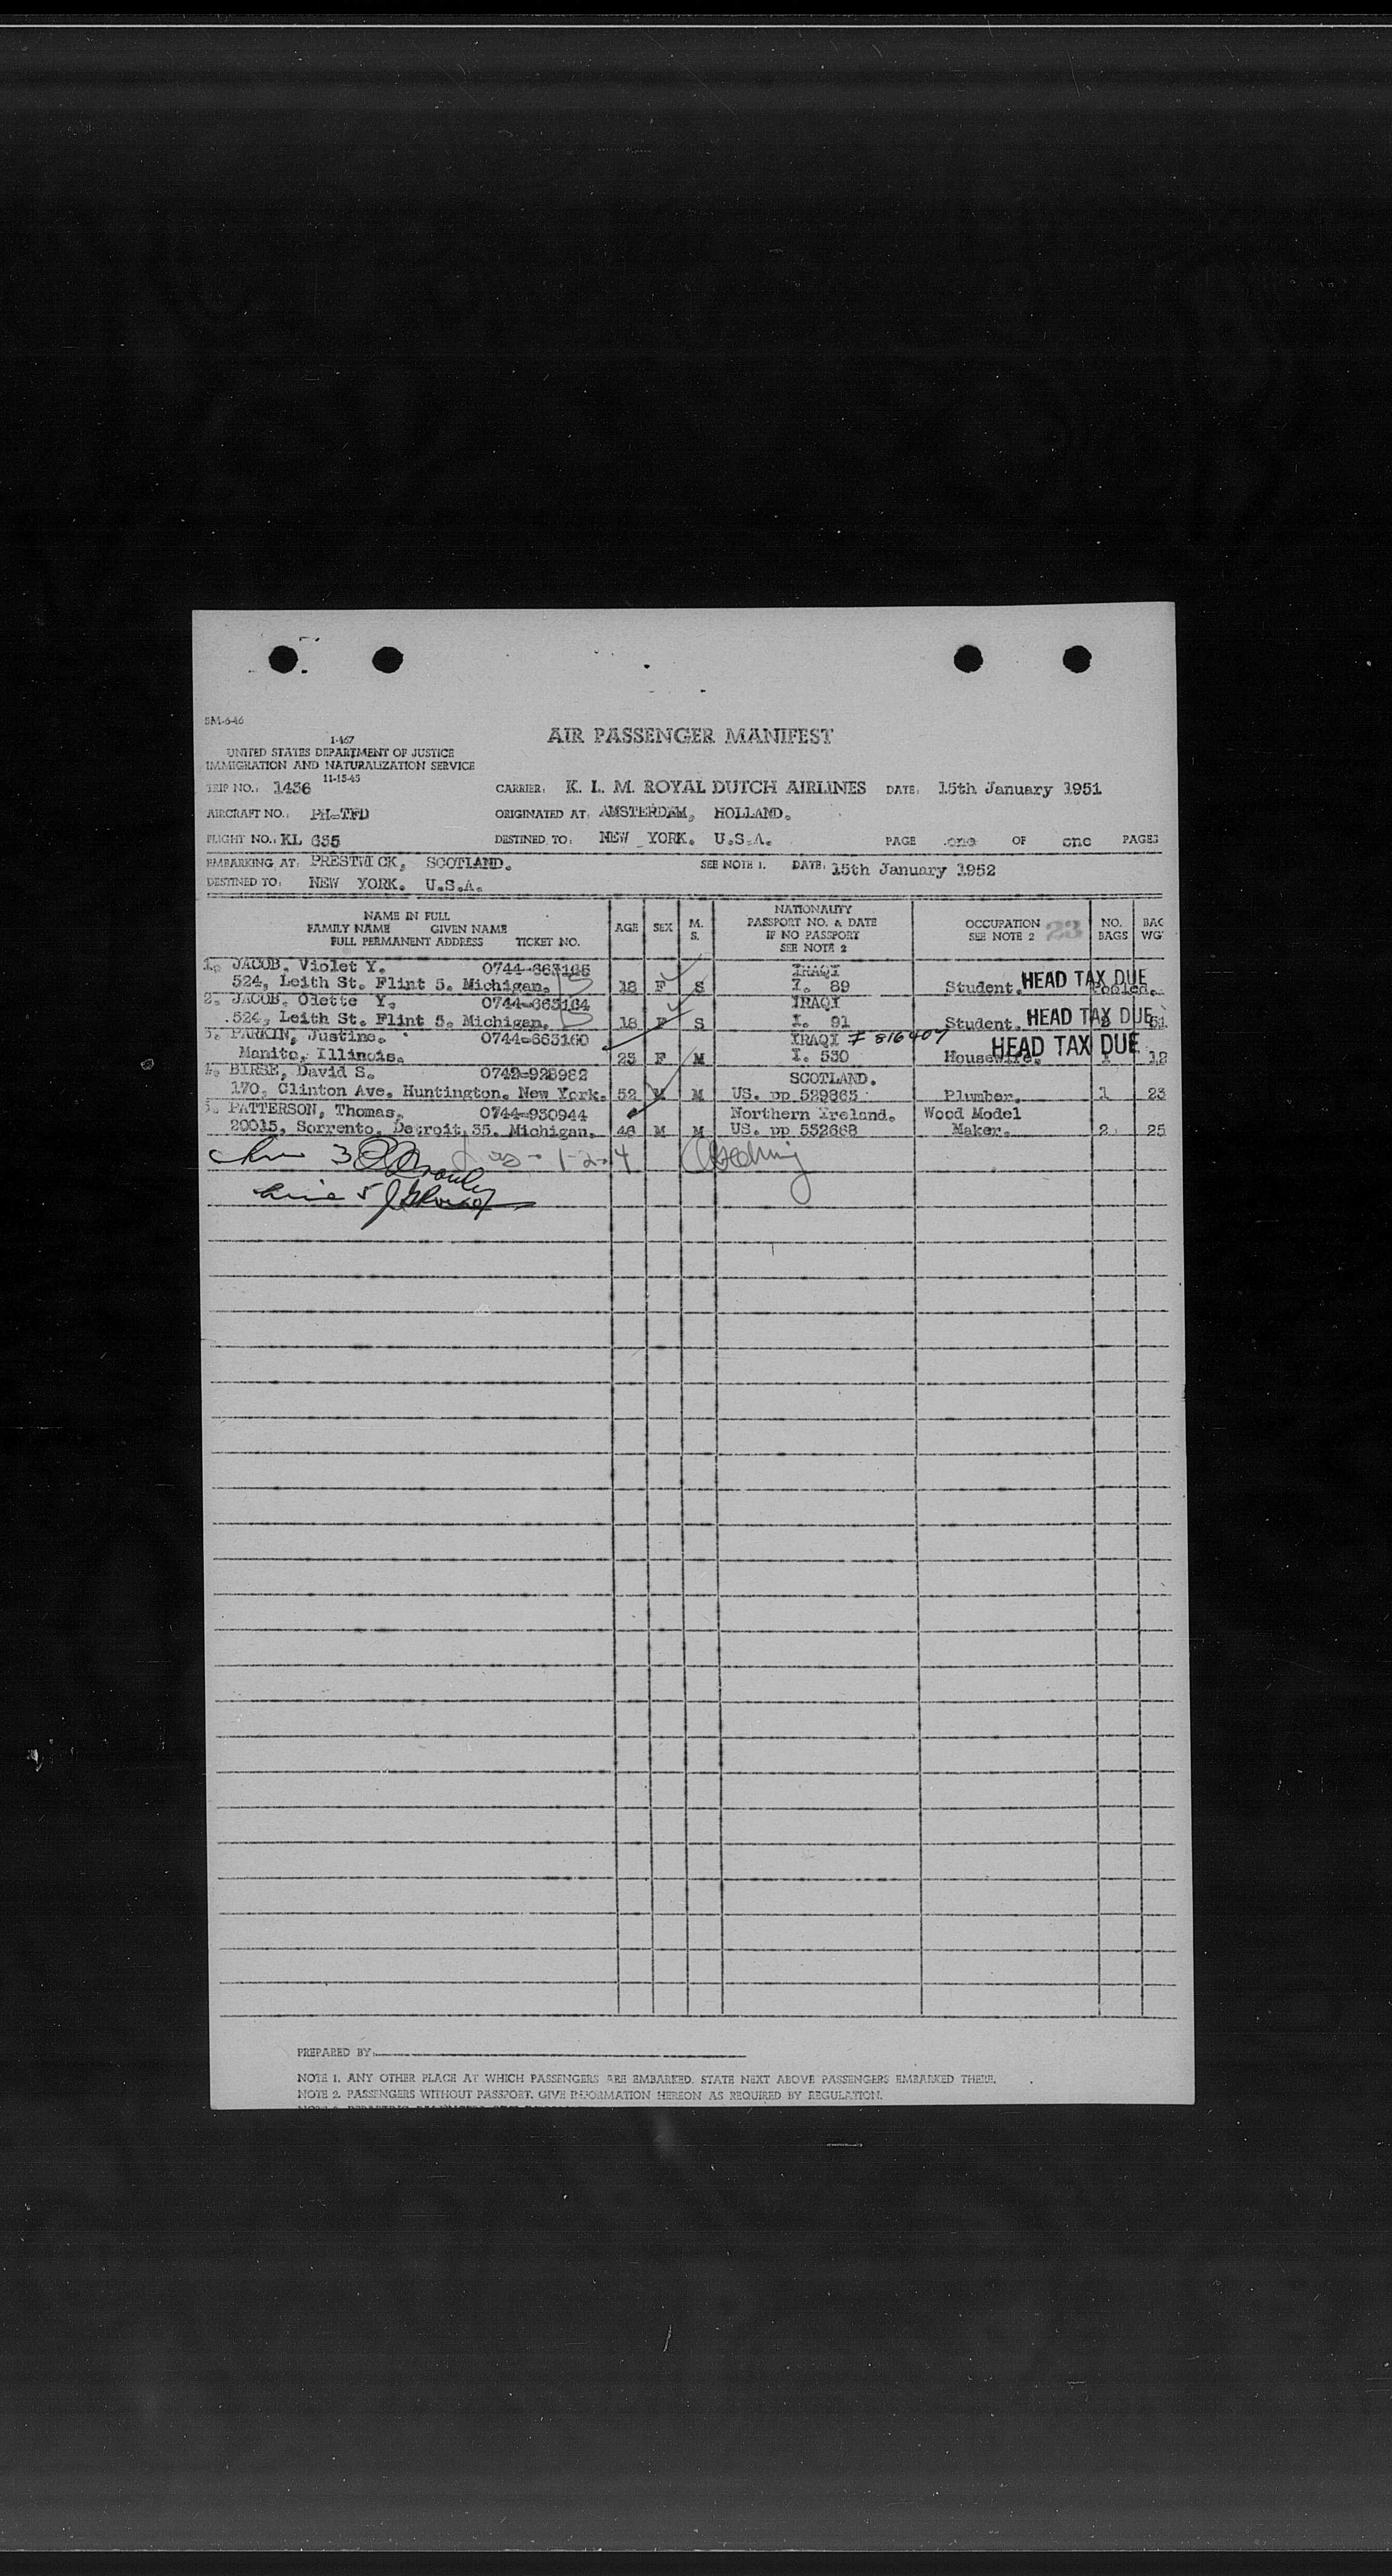 5M-6-46
1-467
UNITED STATES DEPARTMENT OF JUSTICE
IMMIGRATION AND NATURALIZATION SERVICE
11-15-45
AIR PASSENGER MANIFEST
TRIP NO.: 1436 CARRIER: K. L. M. ROYAL DUTCH AIRLINES DATE: 15th January 1951
AIRCRAFT NO.: PH-TFD ORIGINATED AT: AMSTERDAM, HOLLAND.
FLIGHT NO.: KL 635 DESTINED TO: NEW YORK. U.S.A. PAGE one OF one PAGES
EMBARKING AT: PRESTWICK, SCOTLAND. SEE NOTE 1. DATE: 15th January 1952
DESTINED TO: NEW YORK. U.S.A.
NAME IN FULL
FAMILY NAME GIVEN NAME
FULL PERMANENT ADDRESS TICKET NO.
AGE SEX M. S.
NATIONALITY
PASSPORT NO. & DATE
IF NO PASSPORT
SEE NOTE 2
OCCUPATION
SEE NOTE 2 23
NO. BAGS
BAG WG'
1. JACOB, Violet Y. 0744-663165 IRAQI
524, Leith St. Flint 5. Michigan. 18 F S I. 89 Student. HEAD TAX DUE Pooled.
2. JACOB, Odette Y. 0744-663164 IRAQI
524, Leith St. Flint 5. Michigan. 18 F S I. 91 Student. HEAD TAX DUE 51
3. PARKIN, Justine. 0744-663160 IRAQI F 816407
Manito, Illinois. 23 F M I. 530 Housewife. HEAD TAX DUE 1 12
4. BIRSE, David S. 0742-928982 SCOTLAND.
170, Clinton Ave. Huntington. New York. 52 M M US. pp 529863 Plumber. 1 23
5. PATTERSON, Thomas. 0744-930944 Northern Ireland. Wood Model
20015, Sorrento, Detroit 35. Michigan. 46 M M US. pp 552668 Maker. 2 25
Line 3 1-2-4
Line 5
PREPARED BY:
NOTE 1. ANY OTHER PLACE AT WHICH PASSENGERS ARE EMBARKED. STATE NEXT ABOVE PASSENGERS EMBARKED THERE.
NOTE 2. PASSENGERS WITHOUT PASSPORT. GIVE INFORMATION HEREON AS REQUIRED BY REGULATION.